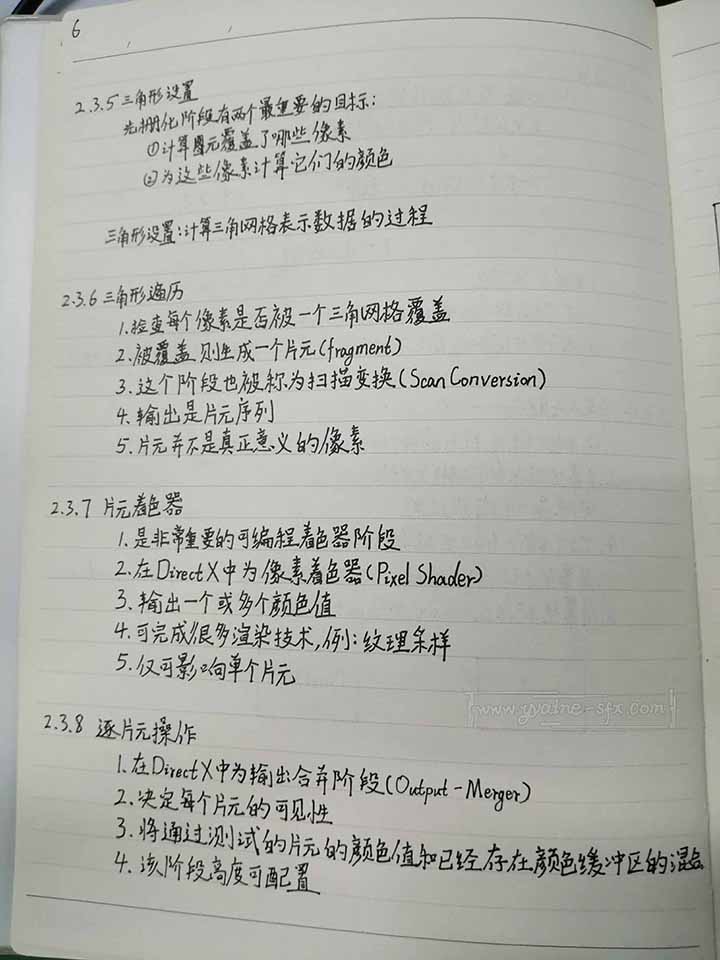 6
2.3.5 三角形设置
光栅化阶段有两个最重要的目标:
①计算图元覆盖了哪些像素
②为这些像素计算它们的颜色
三角形设置:计算三角网格表示数据的过程
2.3.6 三角形遍历
1.检查每个像素是否被一个三角网格覆盖
2.被覆盖则生成一个片元(fragment)
3.这个阶段也被称为扫描变换(Scan Conversion)
4.输出是片元序列
5.片元并不是真正意义的像素
2.3.7 片元着色器
1.是非常重要的可编程着色器阶段
2.在DirectX中为像素着色器(Pixel Shader)
3.输出一个或多个颜色值
4.可完成很多渲染技术,例:纹理采样
5.仅可影响单个片元
www.yvaine-sfx.com
2.3.8 逐片元操作
1.在DirectX中为输出合并阶段(Output-Merger)
2.决定每个片元的可见性
3.将通过测试的片元的颜色值和已经存在颜色缓冲区的混合
4.该阶段高度可配置